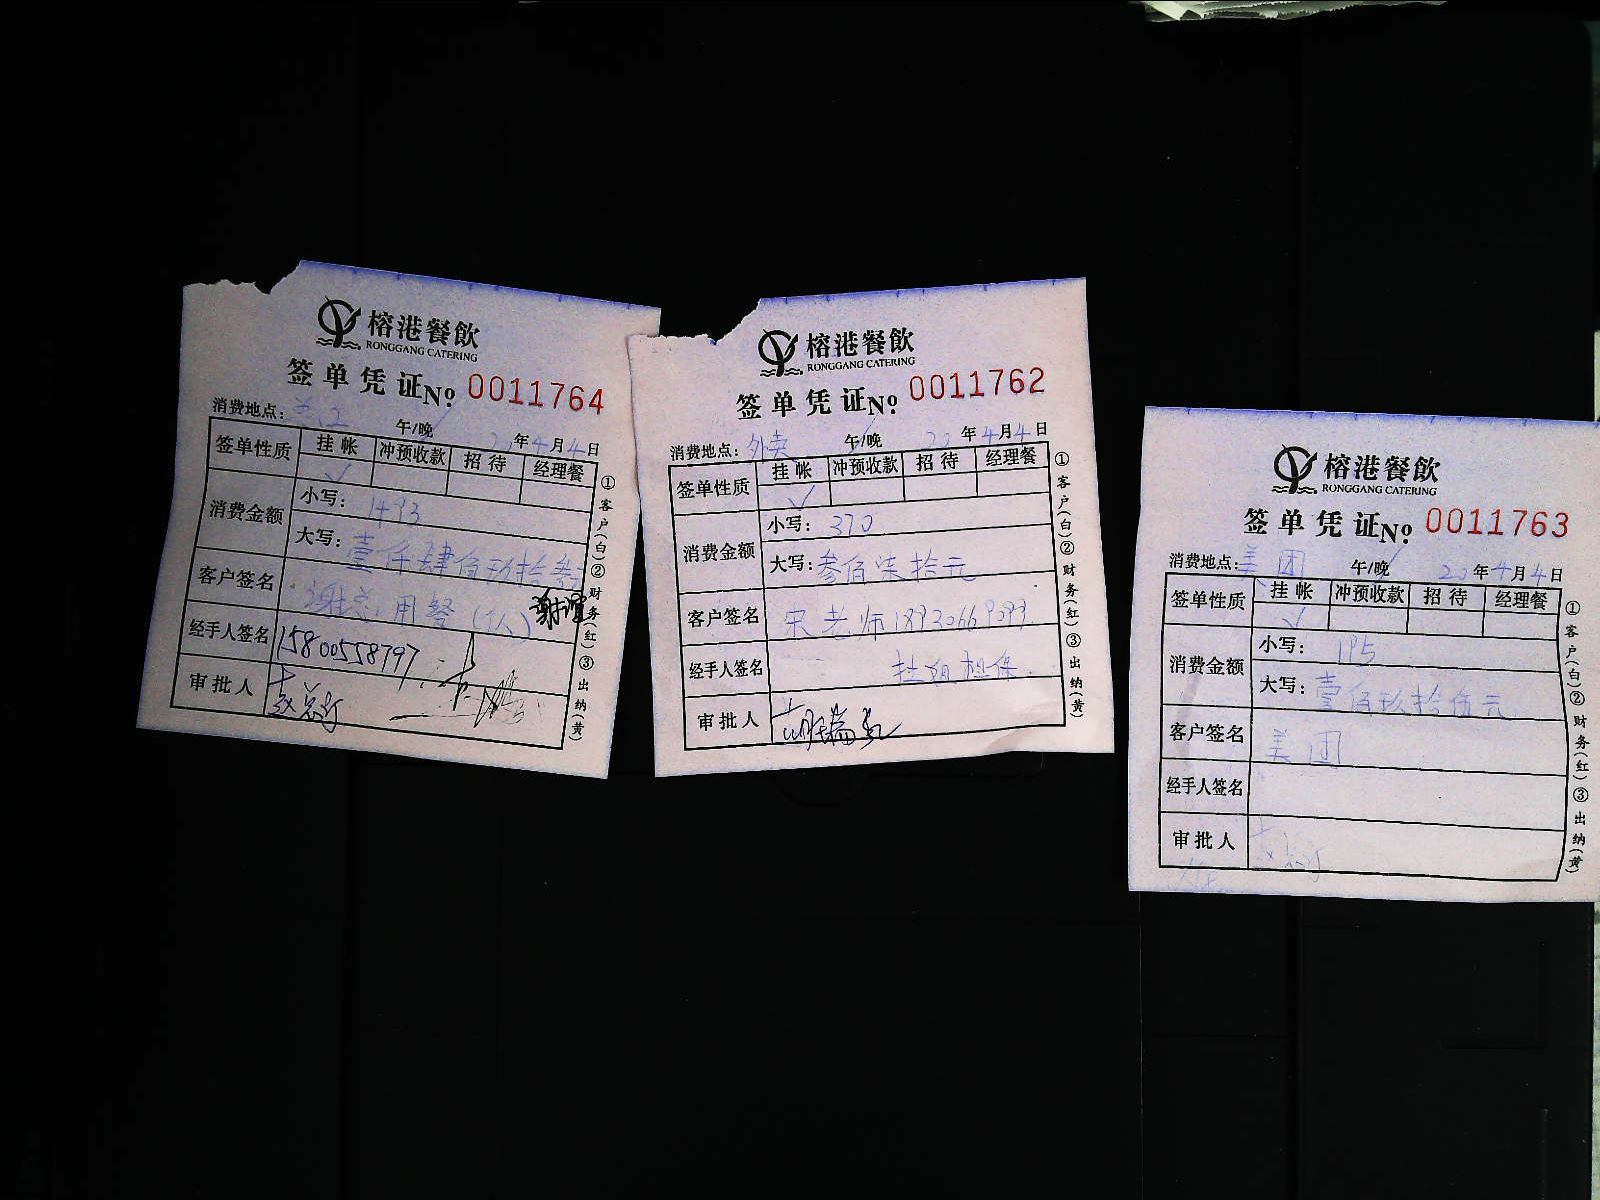 榕港餐飲
RONGGANG CATERING
签单凭证 No: 0011764
消费地点:
午/晚 20年4月4日
签单性质 挂帐 冲预收款 招待 经理餐
✓
消费金额 小写: 1493
大写: 壹仟肆佰玖拾叁元
客户签名 谢总用餐
经手人签名 15800558797
审批人
①客户(白)②财务(红)③出纳(黄)
榕港餐飲
RONGGANG CATERING
签单凭证 No: 0011762
消费地点: 外卖 午/晚 20年4月4日
签单性质 挂帐 冲预收款 招待 经理餐
✓
消费金额 小写: 370
大写: 叁佰柒拾元
客户签名 宋老师
经手人签名 担保
审批人
①客户(白)②财务(红)③出纳(黄)
榕港餐飲
RONGGANG CATERING
签单凭证 No: 0011763
消费地点: 美团 午/晚 20年4月4日
签单性质 挂帐 冲预收款 招待 经理餐
✓
消费金额 小写: 195
大写: 壹佰玖拾伍元
客户签名 美团
经手人签名
审批人
①客户(白)②财务(红)③出纳(黄)